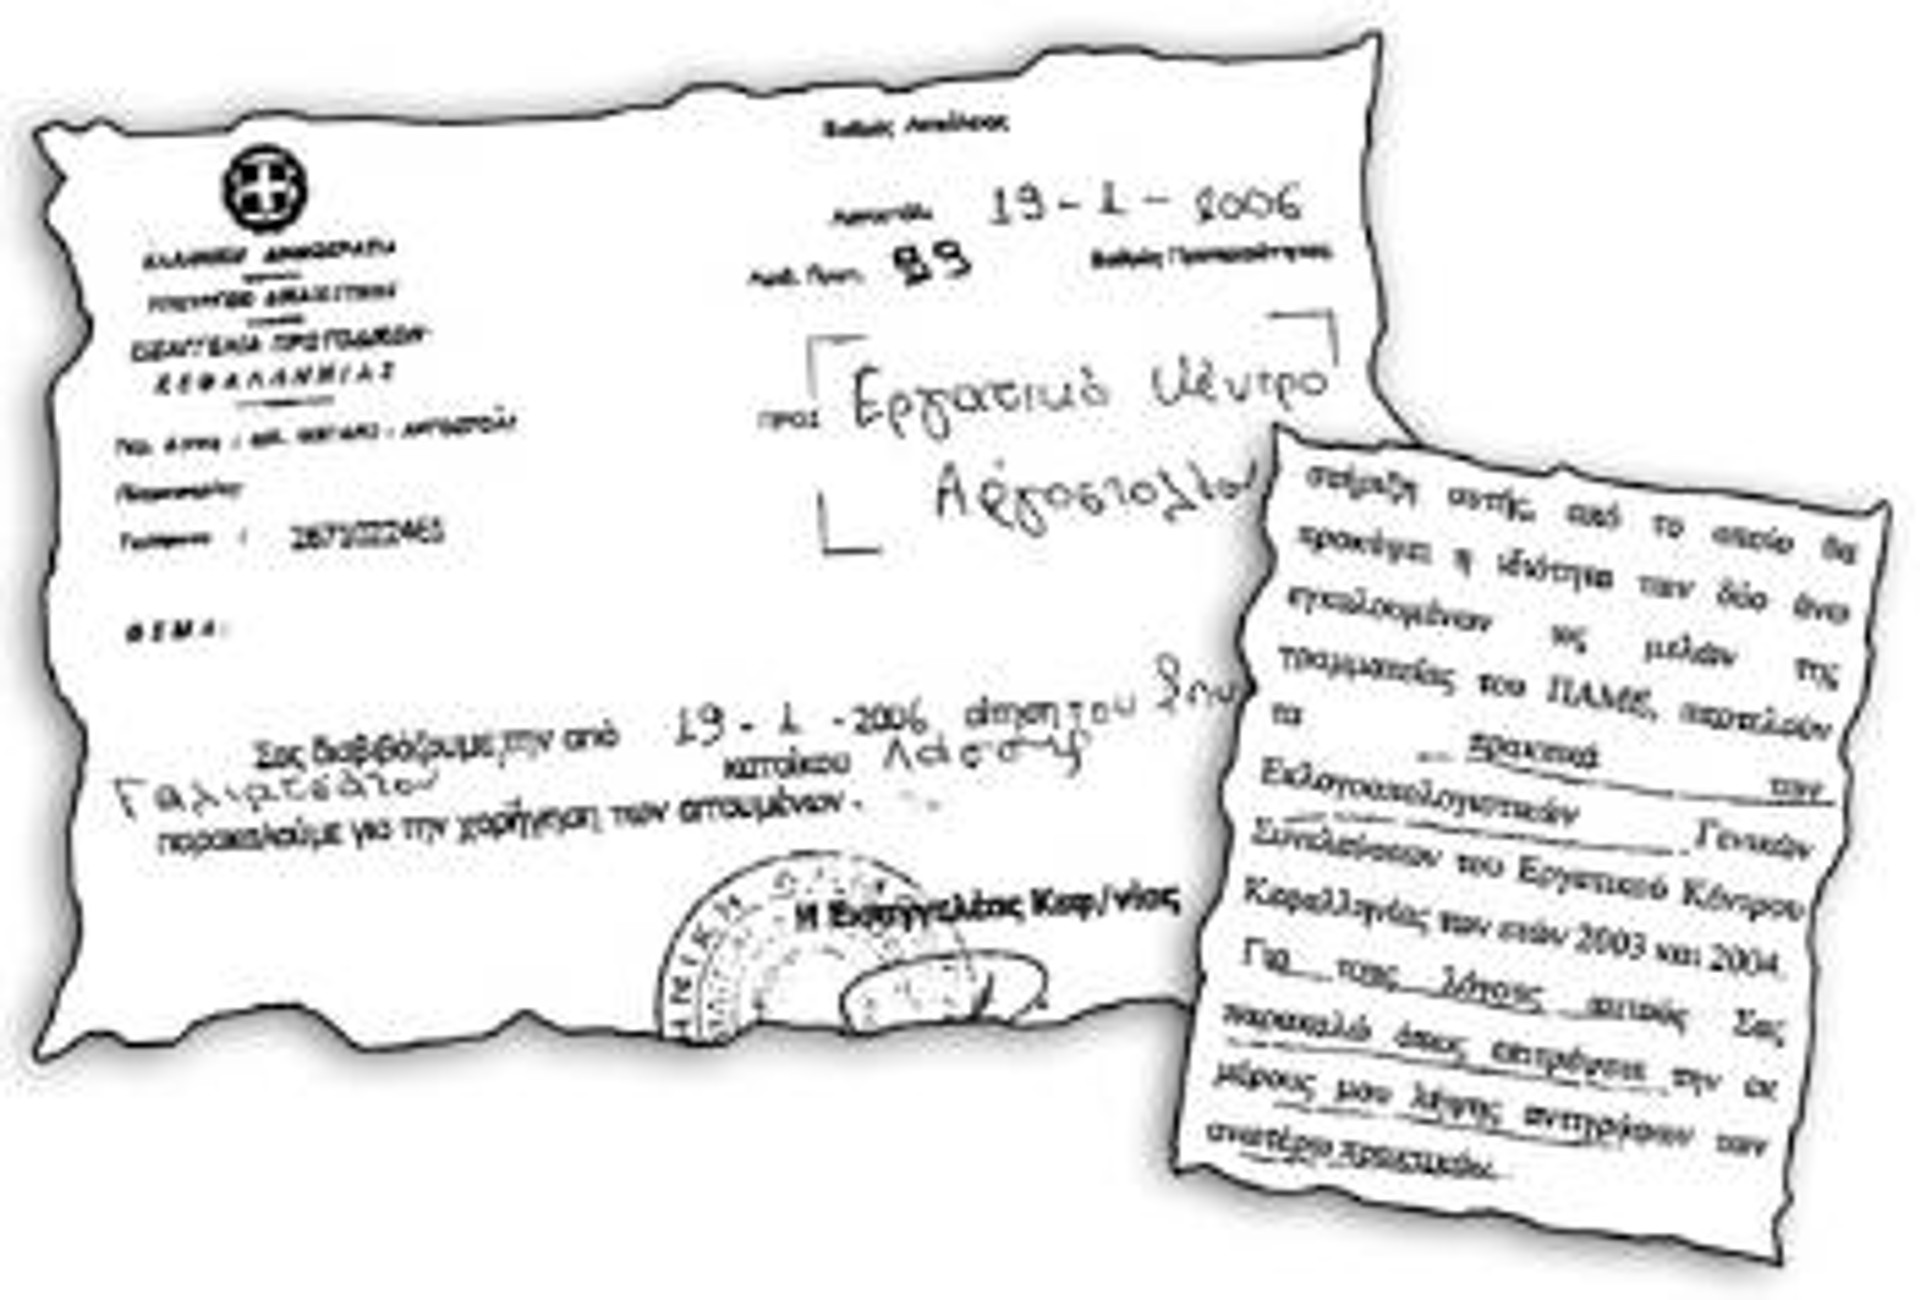 Βαθμός Ασφαλείας
ΕΛΛΗΝΙΚΗ ΔΗΜΟΚΡΑΤΙΑ
ΥΠΟΥΡΓΕΙΟ ΔΙΚΑΙΟΣΥΝΗΣ
ΕΙΣΑΓΓΕΛΙΑ ΠΡΩΤΟΔΙΚΩΝ
ΚΕΦΑΛΛΗΝΙΑΣ
Ταχ. Δ/νση :
Τηλέφωνο :
ΘΕΜΑ:
Αργοστόλι 19 - 1 - 2006
Αριθ. Πρωτ. 99 Βαθμός Προτεραιότητας
ΠΡΟΣ Εργατικό Κέντρο
Αργοστολίου
Σας διαβιβάζουμε την από 19 - 1 - 2006 αίτηση του
κατοίκου Λάσσης
παρακαλούμε για την χορήγηση των αιτουμένων.
Η Εισαγγελέας Κεφ/νίας
στήριξη αυτής, από το οποίο θα
προκύψει η ιδιότητα των δύο άνω
εγκαλουμένων ως μελών της
γραμματείας του ΠΑΜΕ, αποτελούν
τα πρακτικά των
Εκλογοαπολογιστικών Γενικών
Συνελεύσεων του Εργατικού Κέντρου
Κεφαλληνίας των ετών 2003 και 2004.
Για τους λόγους αυτούς Σας
παρακαλώ όπως επιτρέψετε την εκ
μέρους μου λήψης αντιγράφων των
ανωτέρω πρακτικών.